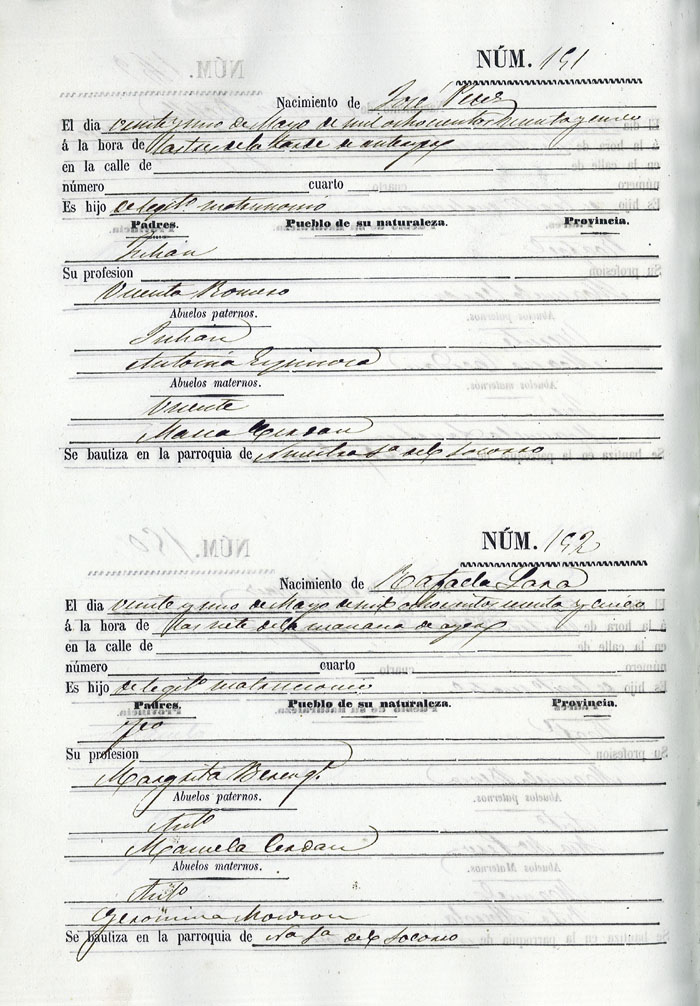 NÚM. 191
Nacimiento de José Perez
El dia veinte y uno de Mayo de mil ochocientos y cinco
á la hora de las tres de la tarde de anteayer
en la calle de
número cuarto
Es hijo de legitº matrimonio
Padres. Pueblo de su naturaleza. Provincia.
Julian
Su profesion
Vicenta Romero
Abuelos paternos.
Julian
Antonia Espinosa
Abuelos maternos.
Vicente
Maria Cerdan
Se bautiza en la parroquia de Nuestra Sª del Socorro
NÚM. 192
Nacimiento de Rafaela Lara
El dia veinte y uno de Mayo de mil ochocientos y cinco
á la hora de las siete de la mañana de ayer
en la calle de
número cuarto
Es hijo de legitº matrimonio
Padres. Pueblo de su naturaleza. Provincia.
Fco
Su profesion
Margarita Bereng.
Abuelos paternos.
Antº
Manuela Cerdan
Abuelos maternos.
Antº
Geronima Monzon
Se bautiza en la parroquia de Nª Sª del Socorro